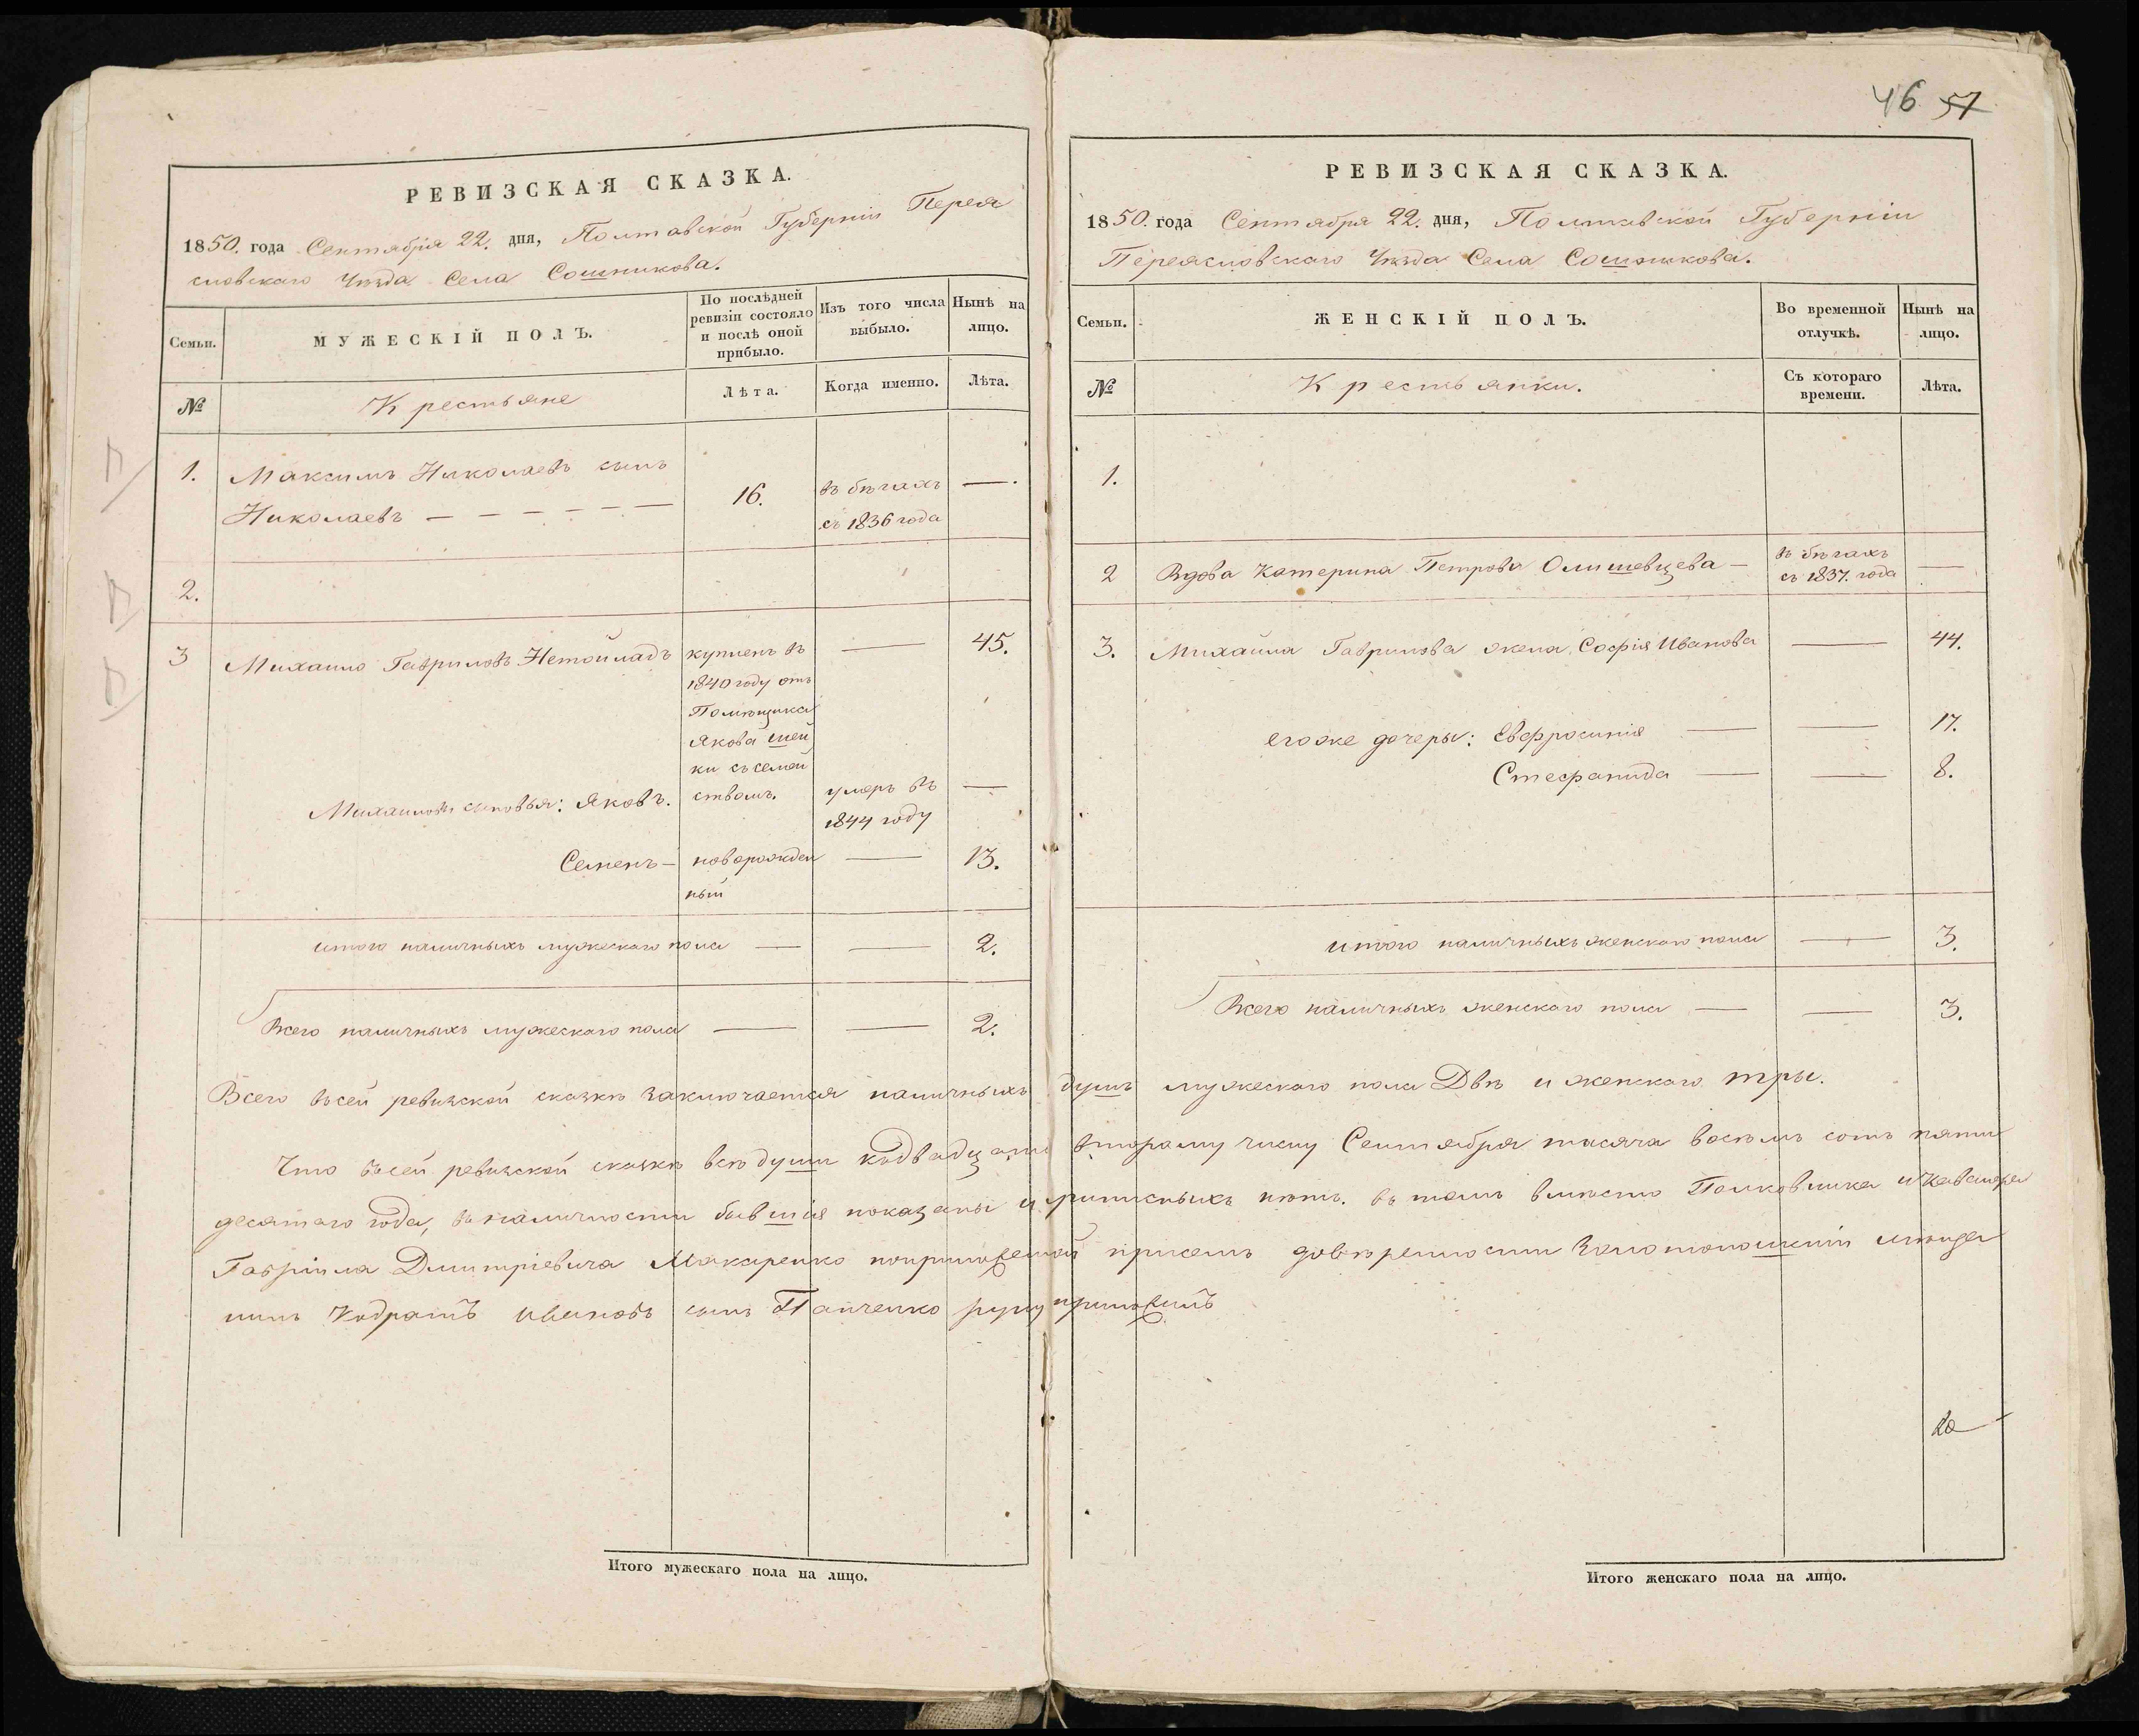 46 57
РЕВИЗСКАЯ СКАЗКА.
1850. года Сентября 22. дня, Полтавской Губерніи Перея
словскаго Уѣзда Села Сошникова.
Семьи.
МУЖЕСКІЙ ПОЛЪ.
По послѣдней
ревизіи состояло
и послѣ оной
прибыло.
Изъ того числа
выбыло.
Нынѣ на
лицо.
№
Крестьяне
Лѣта.
Когда именно.
Лѣта.
1. Максимъ Николаевъ сынъ
Николаевъ — — — — — — 16. въ бѣгахъ — .
съ 1836 года
2.
3 Михаило Гавриловъ Нетойладъ купленъ въ — 45.
1840 году отъ
Помѣщика
Якова Шей
ки съ семей
Михаиловы сыновья: Яковъ. ствомъ. умеръ въ —
1844 году
Семенъ — новорожден — 13.
ный
итого наличныхъ мужескаго пола — — 2.
Всего наличныхъ мужескаго пола — — 2.
РЕВИЗСКАЯ СКАЗКА.
1850. года Сентября 22. дня, Полтавской Губерніи
Переясловскаго Уѣзда Села Сошникова.
Семьи.
ЖЕНСКІЙ ПОЛЪ.
Во временной
отлучкѣ.
Нынѣ на
лицо.
№
Крестьянки.
Съ котораго
времени.
Лѣта.
1.
2 Вдова Катерина Петрова Олишевцева — въ бѣгахъ
съ 1837. года —
3. Михайла Гаврилова жена София Иванова — 44.
его же дочеры: Евфросинія — — 17.
Стефанида — — 8.
итого наличныхъ женскаго пола — 3.
Всего наличныхъ женскаго пола — — 3.
Всего въ сей ревизской сказкѣ заключается наличныхъ душъ мужескаго пола Двѣ и женскаго тры.
Что въ сей ревизской сказкѣ всѣ души к двадцать второму числу Сентября тисяча восемъ сотъ пяти
десятаго года, въ наличности бывшія показаны и прописныхъ нѣтъ. въ томъ вмѣсто Полковника и Кавалера
Гавріила Дмитріевича Макаренко по приложеной при семъ довѣренности Золотоношскій мѣща
нинъ Кодратъ Ивановъ сынъ Панченко руку приложилъ
Итого мужескаго пола на лицо.
Итого женскаго пола на лицо.